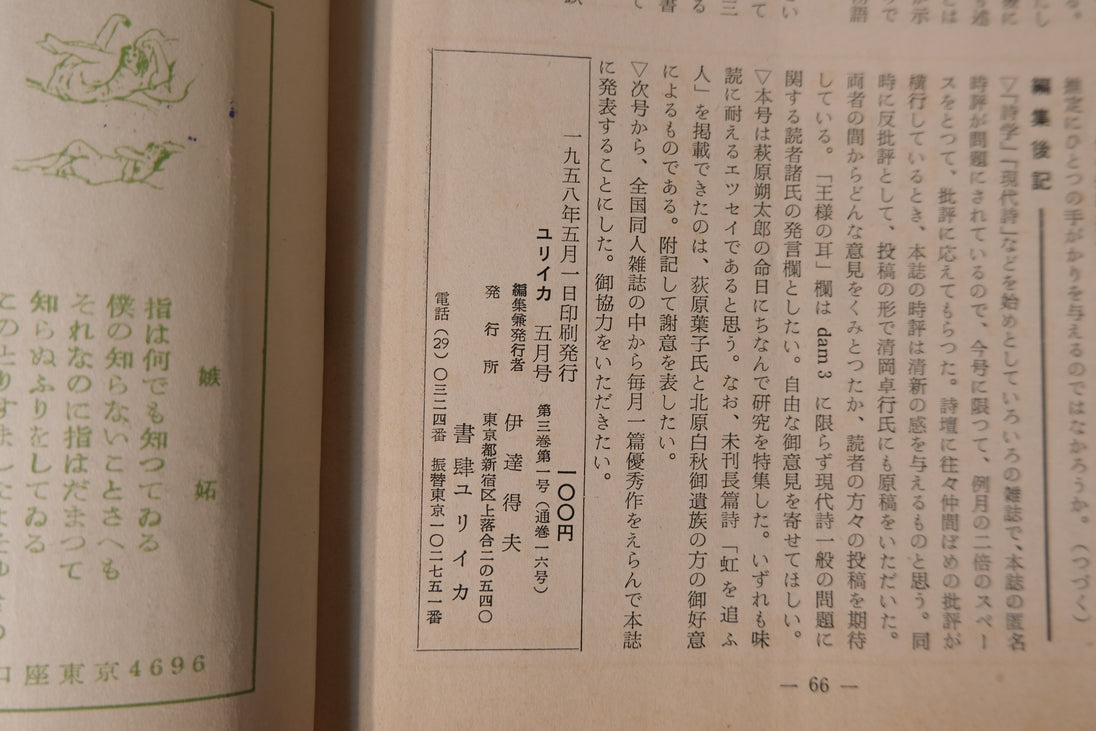 推定にひとつの手がかりを与えるのではなかろうか。（つづく）
編集後記
▽「詩学」「現代詩」などを始めとしていろいろの雑誌で、本誌の匿名
時評が問題にされているので、今号に限つて、例月の二倍のスペー
スをとつて、批評に応えてもらつた。詩壇に往々仲間ぼめの批評が
横行しているとき、本誌の時評は清新の感を与えるものと思う。同
時に反批評として、投稿の形で清岡卓行氏にも原稿をいただいた。
両者の間からどんな意見をくみとつたか、読者の方々の投稿を期待
している。「王様の耳」欄は dam 3 に限らず現代詩一般の問題に
関する読者諸氏の発言欄としたい。自由な御意見を寄せてほしい。
▽本号は萩原朔太郎の命日にちなんで研究を特集した。いずれも味
読に耐えるエツセイであると思う。なお、未刊長篇詩「虹を追ふ
人」を掲載できたのは、萩原葉子氏と北原白秋御遺族の方の御好意
によるものである。附記して謝意を表したい。
▽次号から、全国同人雑誌の中から毎月一篇優秀作をえらんで本誌
に発表することにした。御協力をいただきたい。
一九五八年五月一日印刷発行 一〇〇円
ユリイカ 五月号 第三巻第一号（通巻一六号）
編集兼発行者 伊達得夫
発行所 東京都新宿区上落合二の五四〇
書肆ユリイカ
電話（29）〇三二四番 振替東京一〇二七五一番
— 66 —
嫉妬
指は何でも知つてゐる
僕の知らないことさへも
それなのに指はだまつて
知らぬふりをしてゐる
口座東京4696